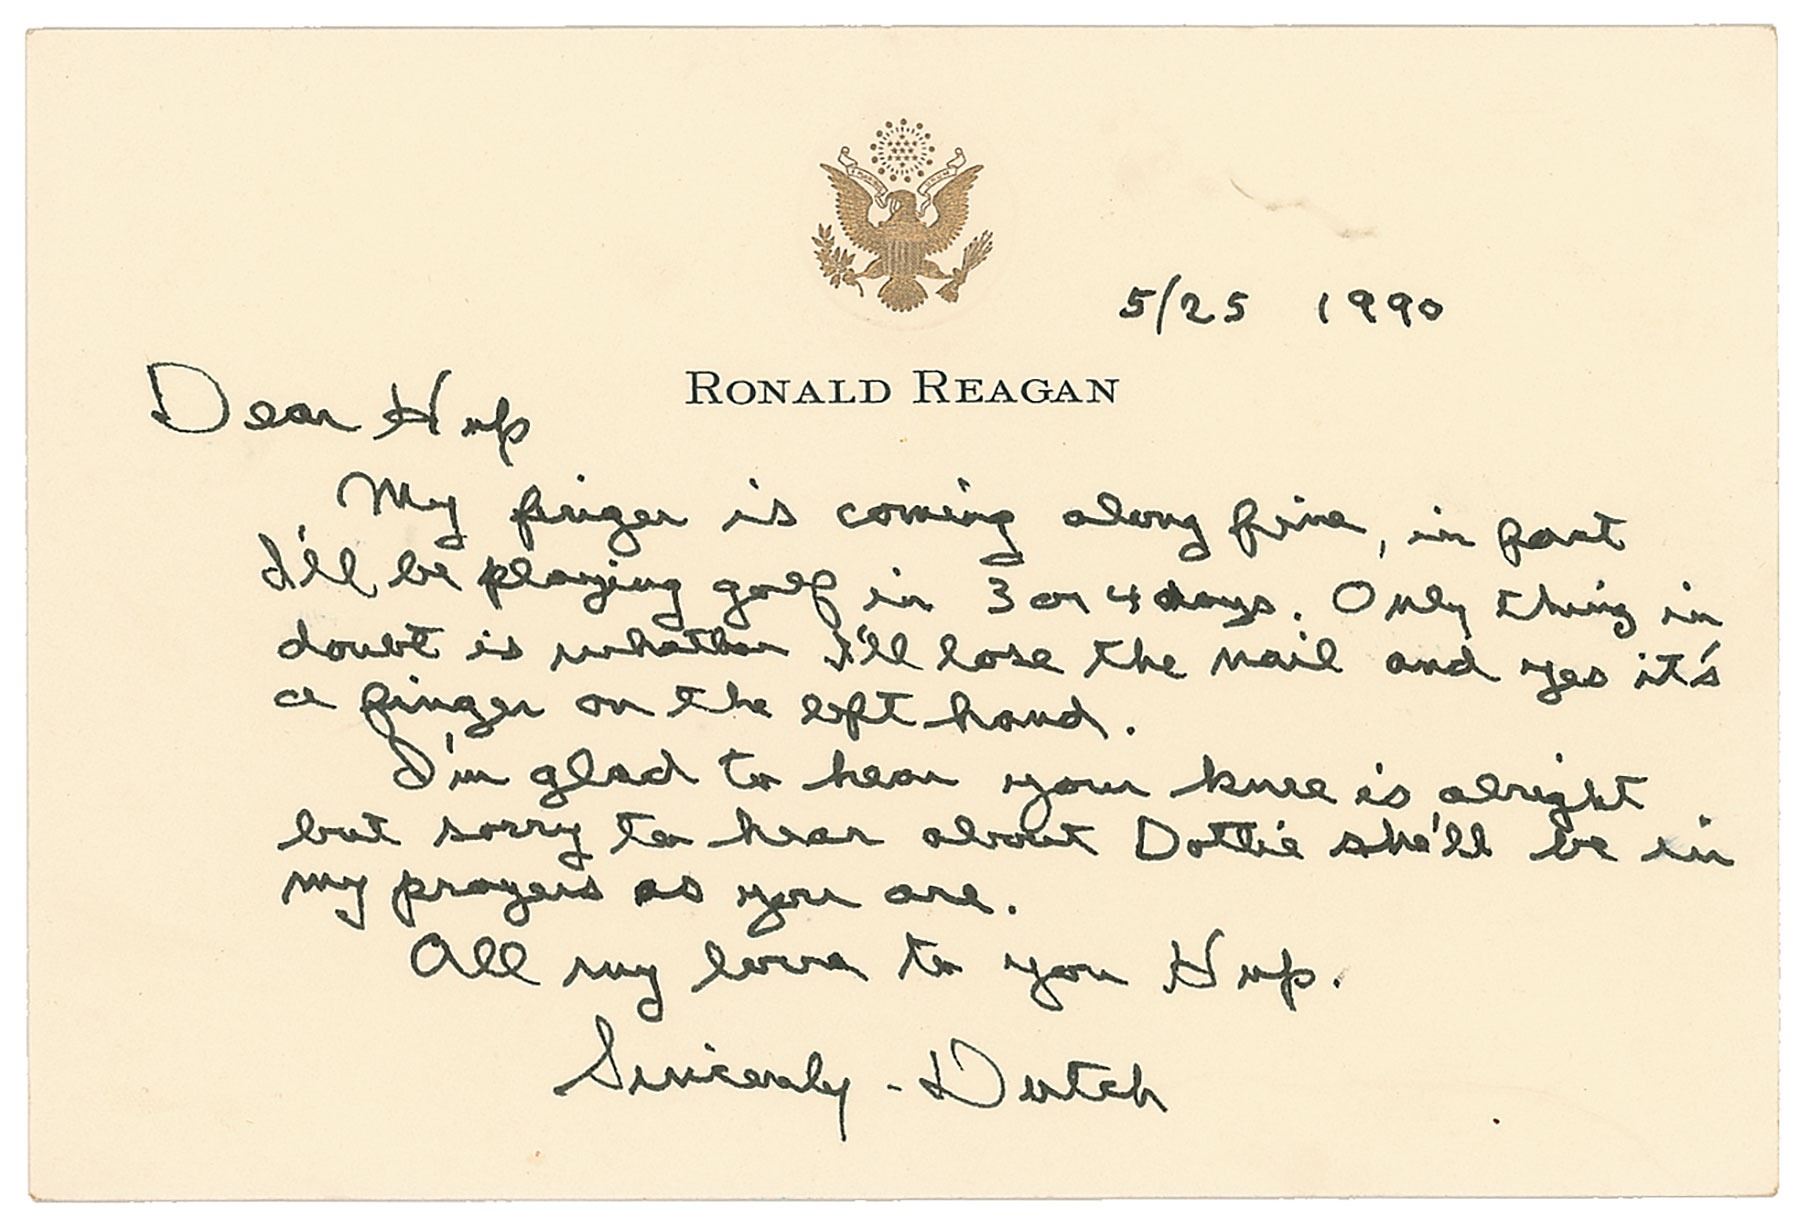 5/25 1990
RONALD REAGAN
Dear Hup
My finger is coming along fine, in fact
I'll be playing golf in 3 or 4 days. Only thing in
doubt is whether I'll lose the nail and yes it's
a finger on the left hand.
I'm glad to hear your knee is alright
but sorry to hear about Dottie she'll be in
my prayers as you are.
All my love to you Hup.
Sincerely - Dutch